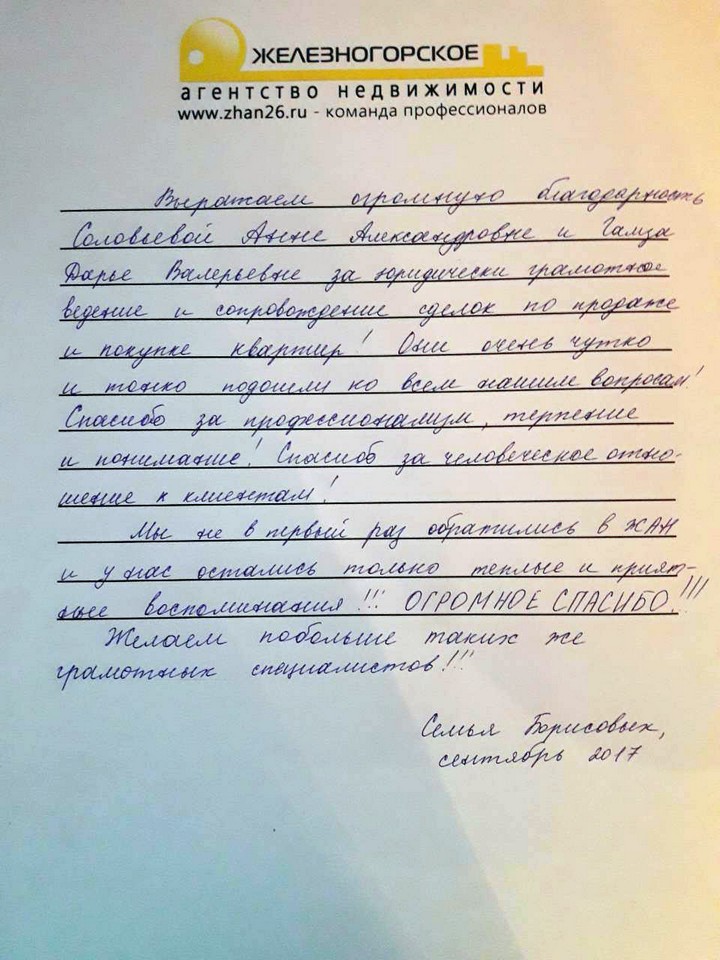 ЖЕЛЕЗНОГОРСКОЕ
агентство недвижимости
www.zhan26.ru - команда профессионалов
Выражаем огромную благодарность
Соловьевой Анне Александровне и Гамза
Дарье Валерьевне за юридически грамотное
ведение и сопровождение сделок по продаже
и покупке квартир! Они очень чутко
и тонко подошли ко всем нашим вопросам!
Спасибо за профессионализм, терпение
и понимание! Спасибо за человеческое отно-
шение к клиентам!
Мы не в первый раз обратились в ЖАН
и у нас остались только теплые и прият-
ные воспоминания!!! ОГРОМНОЕ СПАСИБО!!!
Желаем побольше таких же
грамотных специалистов!!!
Семья Борисовых,
сентябрь 2017